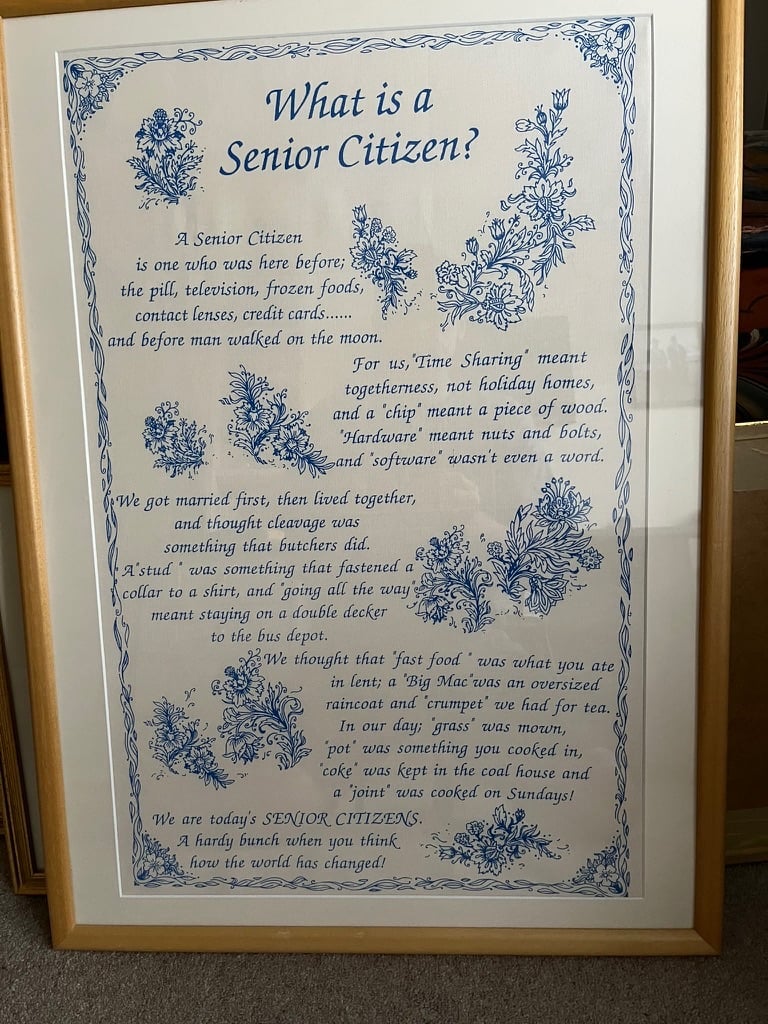 What is a
Senior Citizen?
A Senior Citizen
is one who was here before;
the pill, television, frozen foods,
contact lenses, credit cards......
and before man walked on the moon.
For us,"Time Sharing" meant
togetherness, not holiday homes,
and a "chip" meant a piece of wood.
"Hardware" meant nuts and bolts,
and "software" wasn't even a word.
We got married first, then lived together,
and thought cleavage was
something that butchers did.
A"stud " was something that fastened a
collar to a shirt, and "going all the way"
meant staying on a double decker
to the bus depot.
We thought that "fast food " was what you ate
in lent; a "Big Mac"was an oversized
raincoat and "crumpet" we had for tea.
In our day; "grass" was mown,
"pot" was something you cooked in,
"coke" was kept in the coal house and
a "joint" was cooked on Sundays!
We are today's SENIOR CITIZENS.
A hardy bunch when you think
how the world has changed!